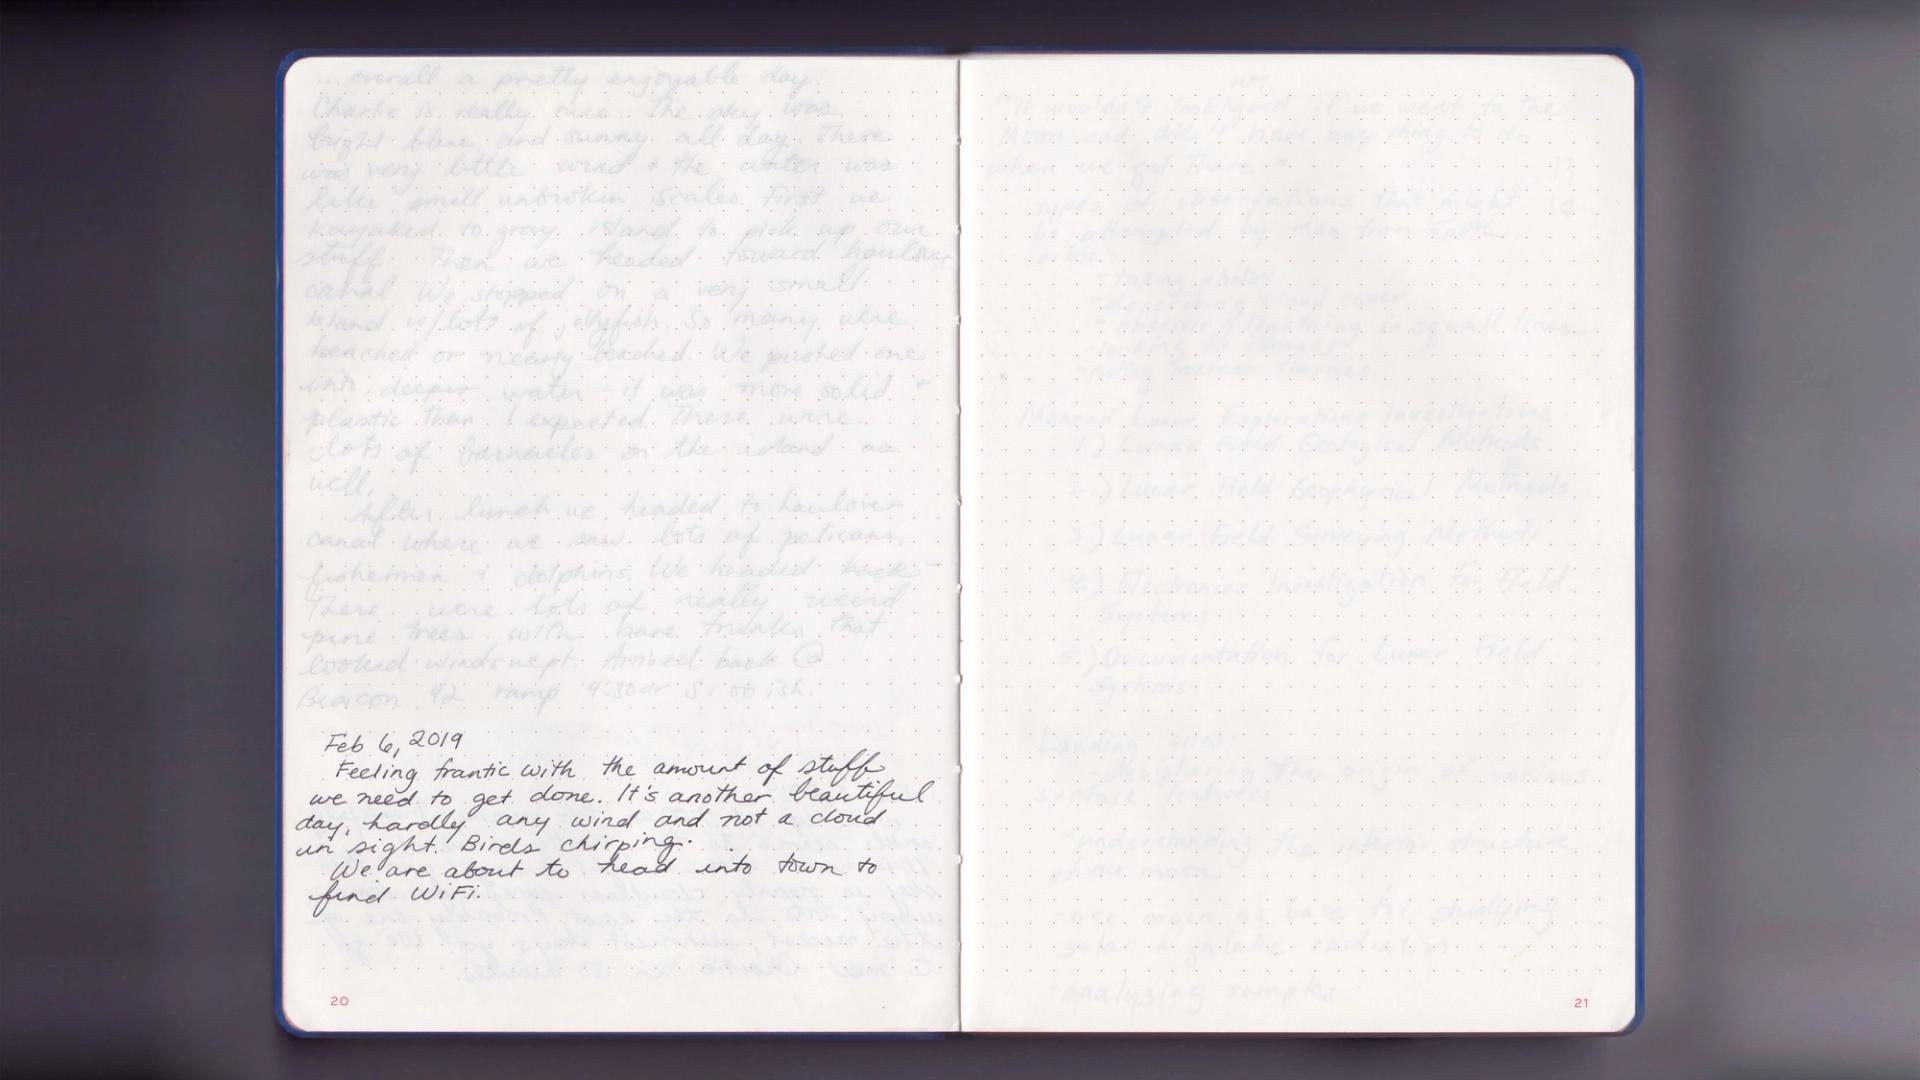 ... overall a pretty enjoyable day.
Charlie is really nice. The sky was
bright blue and sunny all day. There
was very little wind + the water was
like small unbroken scales. First we
kayaked to gray island to pick up our
stuff. Then we headed toward haulover
canal. We stopped on a very small
island w/lots of jellyfish. So many were
beached or nearly beached. We pushed one
into deeper water - it was more solid +
plastic than I expected. There were
lots of barnacles on the island as
well.
After lunch we headed to haulover
canal where we saw lots of pelicans,
fishermen + dolphins. We headed back -
There were lots of really weird
pine trees with bare trunks that
looked windswept. Arrived back @
Beacon 42 ramp 4:30 or 5:00 ish.
Feb 6, 2019
Feeling frantic with the amount of stuff
we need to get done. It's another beautiful
day, hardly any wind and not a cloud
in sight. Birds chirping.
We are about to head into town to
find WiFi.
20
"It wouldn't look good if we went to the
Moon and didn't have any thing to do
when we got there"
types of observations that might
be attempted by man from Earth
orbit
- taking photos
- determining cloud cover
- observing lightning in squall lines
- looking for comets
- noting meteor flashes
Manned Lunar Explorations Investigations
1.) Lunar Field Geological Methods
2.) Lunar Field Geophysical Methods
3.) Lunar Field Surveying Methods
4.) Electronics Investigation for Field
Systems
5.) Documentation for Lunar Field
Systems
Landing sites:
- deciphering the origin of various
surface features
- understanding the interior structure
of the moon
- use moon as base for studying
solar + galactic radiation
- analyzing samples
21